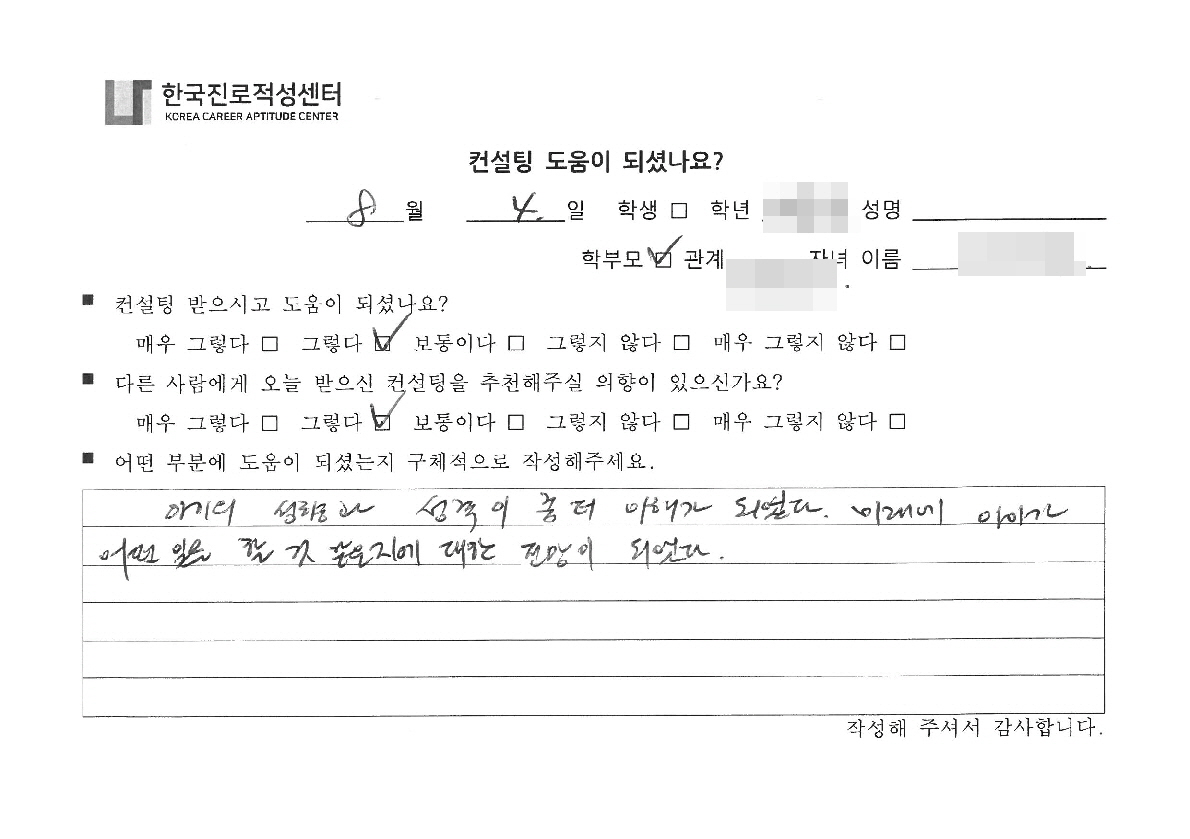 한국진로적성센터
KOREA CAREER APTITUDE CENTER
컨설팅 도움이 되셨나요?
8 월 4. 일 학생 □ 학년 성명
학부모 ☑ 관계 자녀 이름
■ 컨설팅 받으시고 도움이 되셨나요?
매우 그렇다 □ 그렇다 ☑ 보통이다 □ 그렇지 않다 □ 매우 그렇지 않다 □
■ 다른 사람에게 오늘 받으신 컨설팅을 추천해주실 의향이 있으신가요?
매우 그렇다 □ 그렇다 ☑ 보통이다 □ 그렇지 않다 □ 매우 그렇지 않다 □
■ 어떤 부분에 도움이 되셨는지 구체적으로 작성해주세요.
성향과 성격이 좀 더 이해가 되었다. 미래에 아이가
어떤 일을 할 것 같은지에 대한 전망이 되었다.
작성해 주셔서 감사합니다.